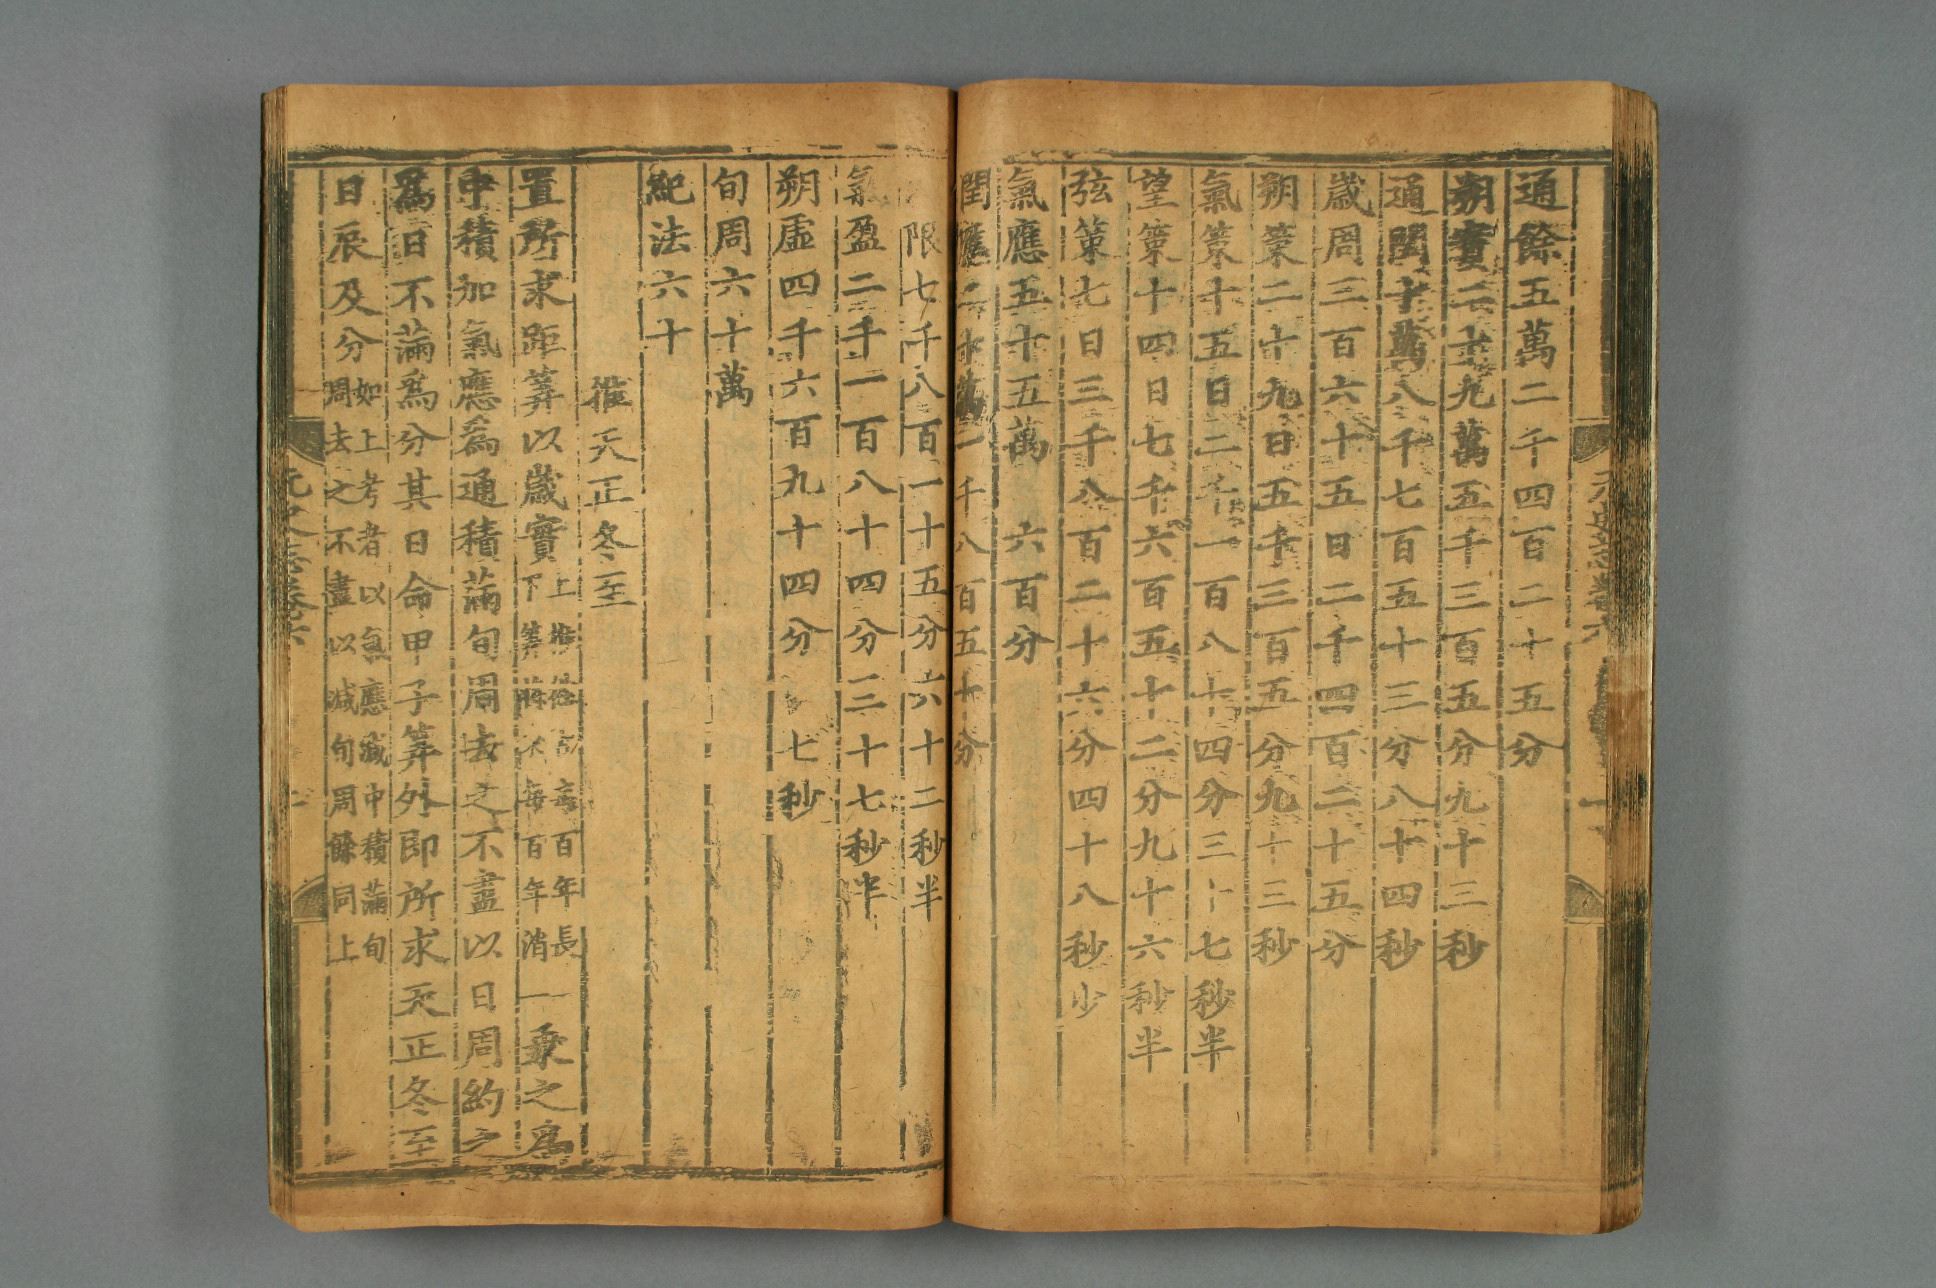 通餘五萬二千四百二十五分
朔實二十九萬五千三百五分九十三秒
通閏十萬八千七百五十三分八十四秒
歲周三百六十五日二千四百二十五分
朔策二十九日五千三百五分九十三秒
氣策十五日二千一百八十四分三十七秒半
望策十四日七千六百五十二分九十六秒半
弦策七日三千八百二十六分四十八秒少
氣應五十五萬六百分
閏應二十萬一千八百五十分
限七千八百一十五分六十二秒半
氣盈二千一百八十四分三十七秒半
朔虛四千六百九十四分七秒
旬周六十萬
紀法六十
推天正冬至
置所求距筭以歲實上推往古每百年長
下筭將來每百年消一乘之爲
中積加氣應爲通積滿旬周去之不盡以日周約之
爲日不滿爲分其日命甲子筭外即所求天正冬至
日辰及分如上考者以氣應減中積滿旬
周去之不盡以減旬周餘同上
元史志卷六